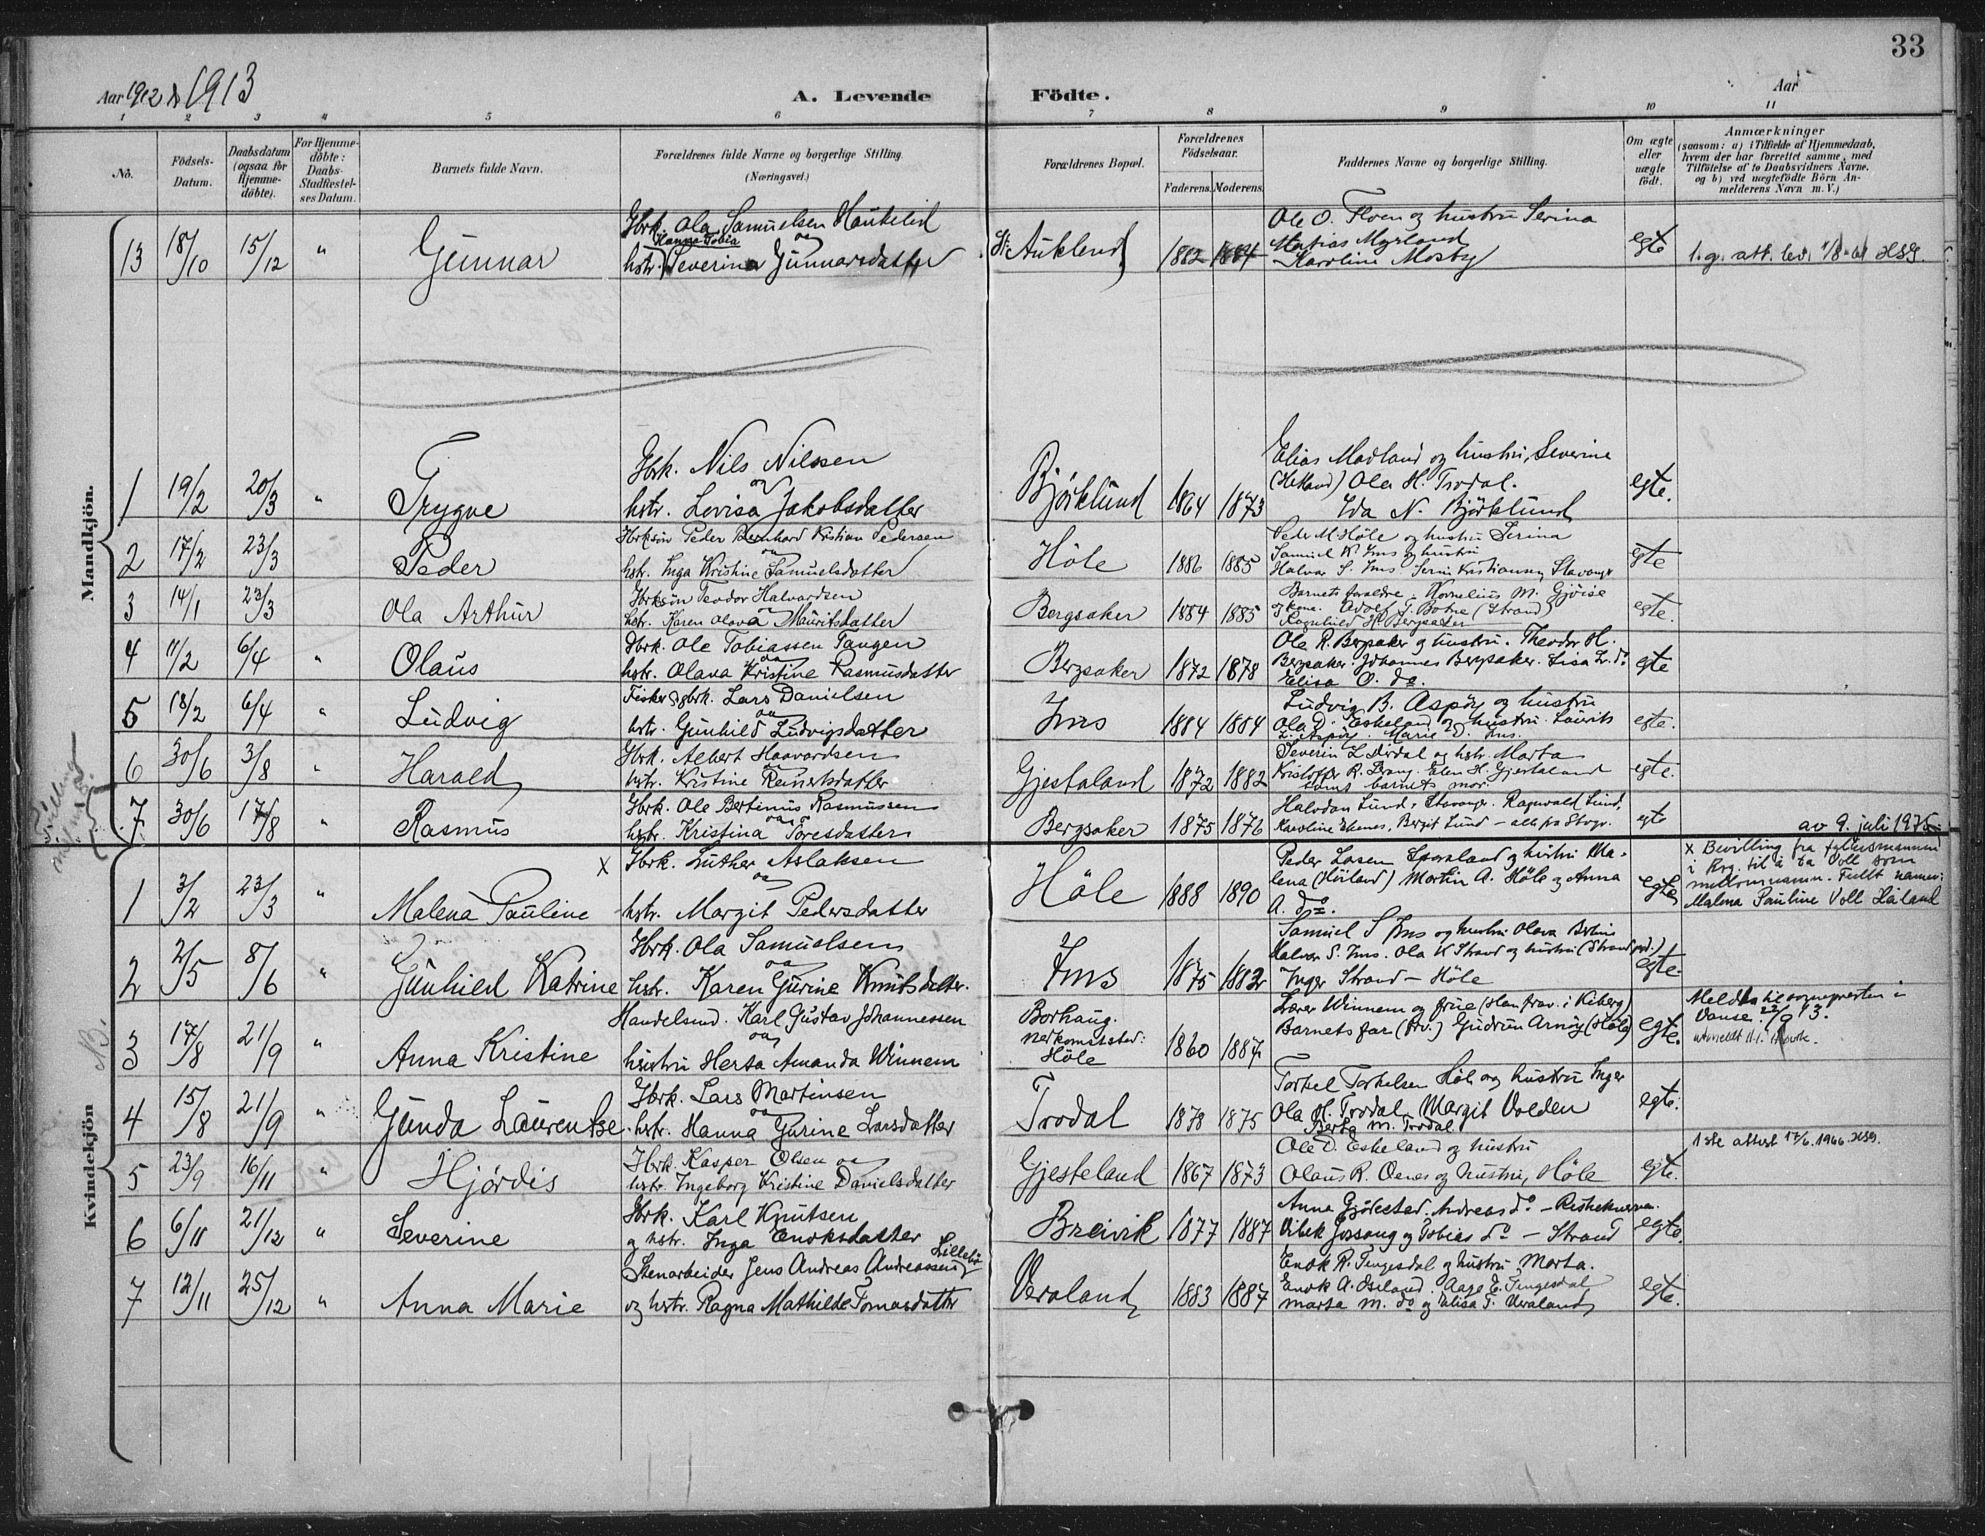 33
Aar 1912 & 1913
A. Levende Födte.
Aar
1 2 3 4 5 6 7 8 9 10 11
No.
Födsels-Datum.
Daabsdatum (ogsaa for Hjemme-döbte).
For Hjemme-döbte: Daabs-Stadfæstel-ses Datum.
Barnets fulde Navn.
Forældrenes fulde Navne og borgerlige Stilling. (Næringsvei.)
Forældrenes Bopæl.
Forældrenes Födselsaar.
Faderens. Moderens.
Faddernes Navne og borgerlige Stilling.
Om ægte eller uægte födt.
Anmærkninger
(saasom: a) i Tilfælde af Hjemmedaab, hvem der har forrettet samme, med Tilföielse af to Daabsvidners Navne, og b) ved uægtefödte Börn An-melderens Navn m. V.)
Mandkjön.
13 18/10 15/12 " Gunnar
Gbrk. Ola Samuelsen Haukelid og
Hanna Tobia
hstr. Severina Gunnarsdatter
St. Aukland 1882 1884
Ole O. Floen og hustru Serina
Matias Myrland
Karoline Mosby
egte
1 19/2 20/3 " Trygve
Gbrk. Nils Nilssen
og
hstr. Lovisa Jakobsdatter
Bjørklund 1864 1873
Elias Madland og hustru, Severine
(Hetland) Ola H. Trodal.
Ida N. Björklund
egte.
2 17/2 23/3 Peder
Gbrksøn Peder Bernhard Kristian Pedersen
og
hstr. Inga Kristine Samuelsdatter
Höle 1886 1885
Peder M Höle og hustru Serina
Samuel K. Ims og hustru
Halvar S. Ims
egte
3 14/1 23/3 Ola Arthur
Gbrksön Teodor Halvardsen
og
hstr. Karen Olava Mauritsdatter
Bergsaker 1884 1885
Barnets foraldre. Kornelius M. Gjöise
Ragnhild H. Bergsaker
egte.
4 11/2 6/4 " Olaus
Gbrk. Ole Tobiassen Tangen
og
hstr. Olava Kristine Rasmusdatter
Bergsaker 1872 1878
Ole R. Bergsaker og hustru. Theodor H.
Bergsaker. Johannes Bergsaker. Lisa L. do
Elisa O. do.
egte
5 18/2 6/4 " Ludvig
Fisker og Gbrk. Lars Danielsen
og
hstr. Gunhild Ludvigsdatter
Ims 1884 1884
Ludvig B. Aspöy og hustru
Ola D. Eskeland og hustru. Laurits
L. Aspöy. Marie D. Ims.
egte.
6 30/6 3/8 " Harald
Gbrk. Albert Haavardsen
og
hstr. Kristine Reinertsdatter
Gjestaland 1872 1882
Severin L. Dirdal og hstr. Marta
Kristoffer R. Brang. Elen H. Gjestaland
samt barnets mor.
egte.
7 30/6 17/8 " Rasmus
Gbrk. Ole Bertinus Rasmussen
og
hstr. Kristina Toresdatter
Bergsaker 1875 1876
Halvdan Lund, Stavanger. Ragnvald Lund,
Karoline Ekenes, Bergit Lund – alle fra Stvgr.
egte
Kvindekjön
NB.
1 3/2 23/3 " Malena Pauline
x Gbrk. Luther Aslaksen
og
hstr. Margit Pedersdatter
Höle 1888 1890
Peder Larsen Sporaland og hustru Ma-
lena (Höiland) Martin A. Höle og Anna
A. do.
egte
av 9. juli 1976.
x Bevilling fra fylkesmannen
i Rog. til å ta Voll som
mellomnamn. Fullt namn:
Malena Pauline Voll Håland
2 2/5 8/6 " Gunhild Katrine
Gbrk. Ola Samuelsen
og
hstr. Karen Gurine Knutsdatter.
Ims 1875 1882
Samuel S Ims og hustru Olava Bertine
Halvar S. Ims. Ola K Strand og hustru (Strand pd.)
Inger Strand – Höle
egte.
3 17/8 21/9 " Anna Kristine
Handelsmd. Karl Gustav Johannessen
og
hustru Herta Amanda Winnem
Borhaug.
nedkomststed:
Höle
1860 1887
Barnets far (frv.) Gudrun Arnöy (Höle)
egte.
Meldt til sognepresten i
Vanse. 22/9 13.
4 15/8 21/9 " Gunda Laurentse
Gbrk. Lars Martinsen
og
hstr. Hanna Gurine Larsdatter
Trodal 1878 1875
Torkel Torkelsen Höle og hustru Inger
Ola H. Trodal, Margit Volden
Berta M. Trodal
egte.
5 23/9 16/11 " Hjördis
Gbrk. Kasper Olsen og
hstr. Ingeborg Kristine Danielsdatter
Gjesteland 1867 1873
Ole D. Eskeland og hustru
Olaus R. Oenes og hustru, Höle
egte.
1ste attest 17/6. 1966. HSG.
6 6/11 21/12 " Severine
Gbrk. Karl Knutsen
og hstr. Inga Enoksdatter
Breivik 1877 1887
Anna Gjölestad. Andreas do –
Vibek Jössang og Tobias do – Strand
egte.
7 12/11 25/12 " Anna Marie
Stenarbeider Jens Andreas Andreassen
og hstr. Ragna Mathilde Tomasdatter
Veraland 1883 1887
Enok R. Tengesdal og hustru Marta.
Enok A. Eseland. Aage E. Tengesdal
Marta M. do og Elisa T. Veraland
egte.